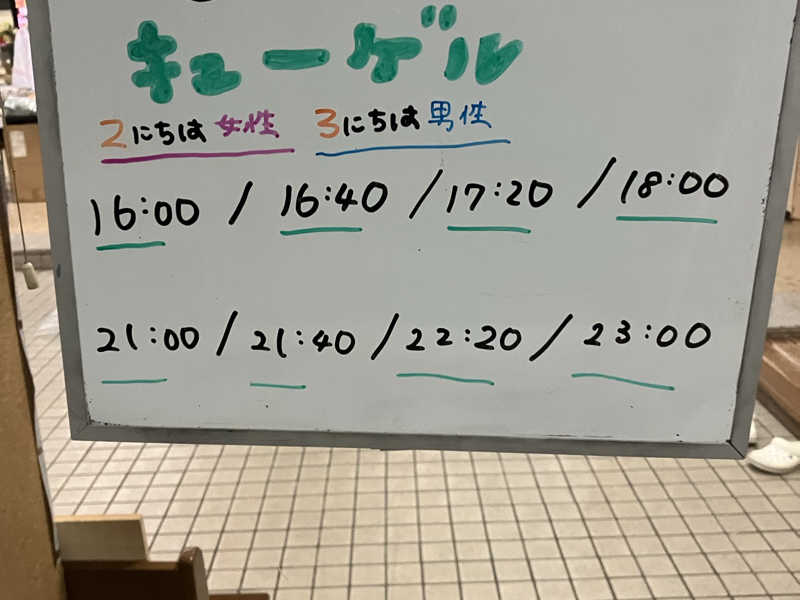 キューゲル
2にちは女性 3にちは男性
16:00 / 16:40 / 17:20 / 18:00
21:00 / 21:40 / 22:20 / 23:00